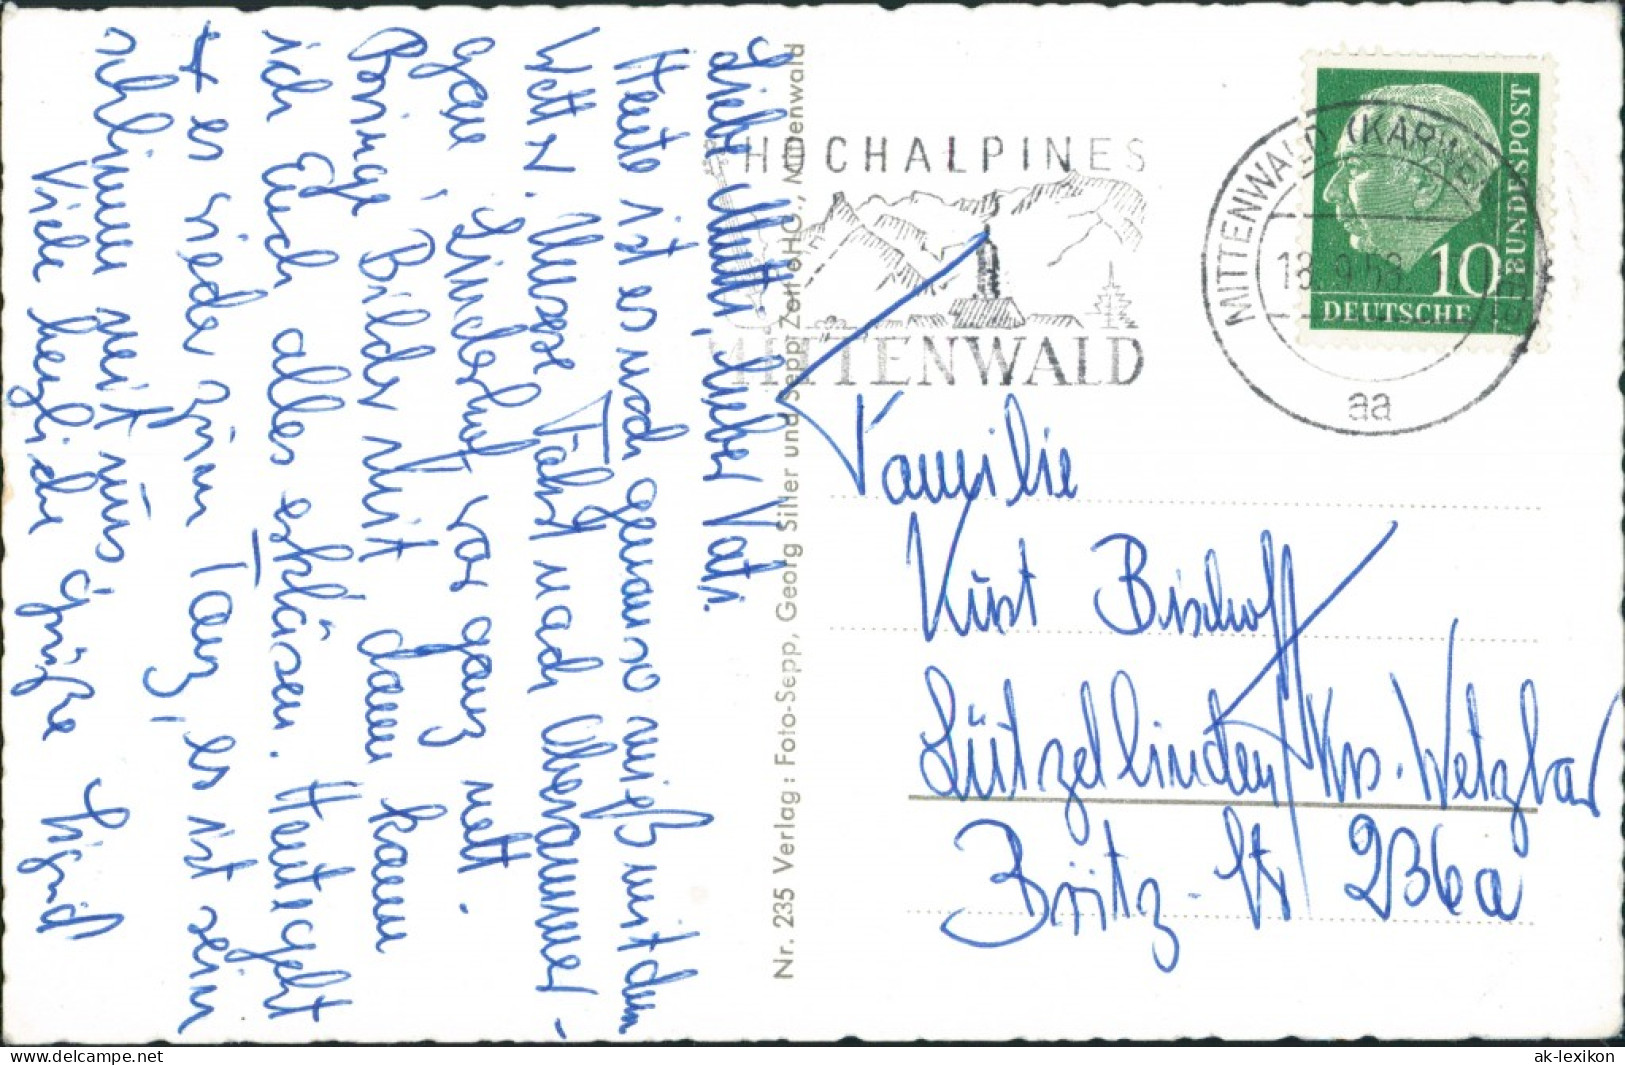 Liebe Mutti, lieber Vati.
Heute ist es noch genauso mieß mit dem
Wetter. Unsere Fahrt nach Oberammer-
gau, Linderhof war ganz nett.
Bringe Bilder mit dann kann
ich Euch alles erklären. Heute geht
es wieder zum Tanz, es ist sehr
schlimm mit uns,
Viele herzliche Grüße Sigrid
Nr. 235 Verlag: Foto-Sepp, Georg Siller und Sepp Zott oHG., Mittenwald
HOCHALPINES
MITTENWALD
MITTENWALD (KARWENDEL)
aa
10
DEUTSCHE
BUNDESPOST
Familie
Kurt Bischoff
Lützellinden Krs. Wetzlar
Britz-Str 236a
www.delcampe.net
ak-lexikon